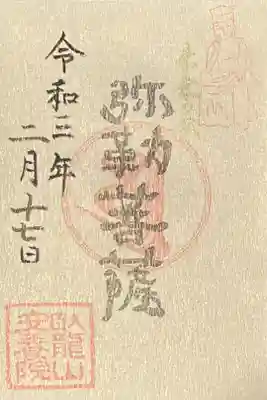 弥勒菩薩
令和三年
二月十七日
臥龍山
安養院